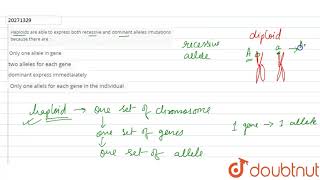 20271329
Haploids are able to express both recessive and dominant alleles /mutations
because there are
Only one allele in gene
two alleles for each gene
dominant express immediataely
Only one alles for each gene in the individual
recessive
allele
diploid
A
a
haploid → one set of chromosome
one set of genes
one set of allele
1 gene → 1 allele
doubtnut